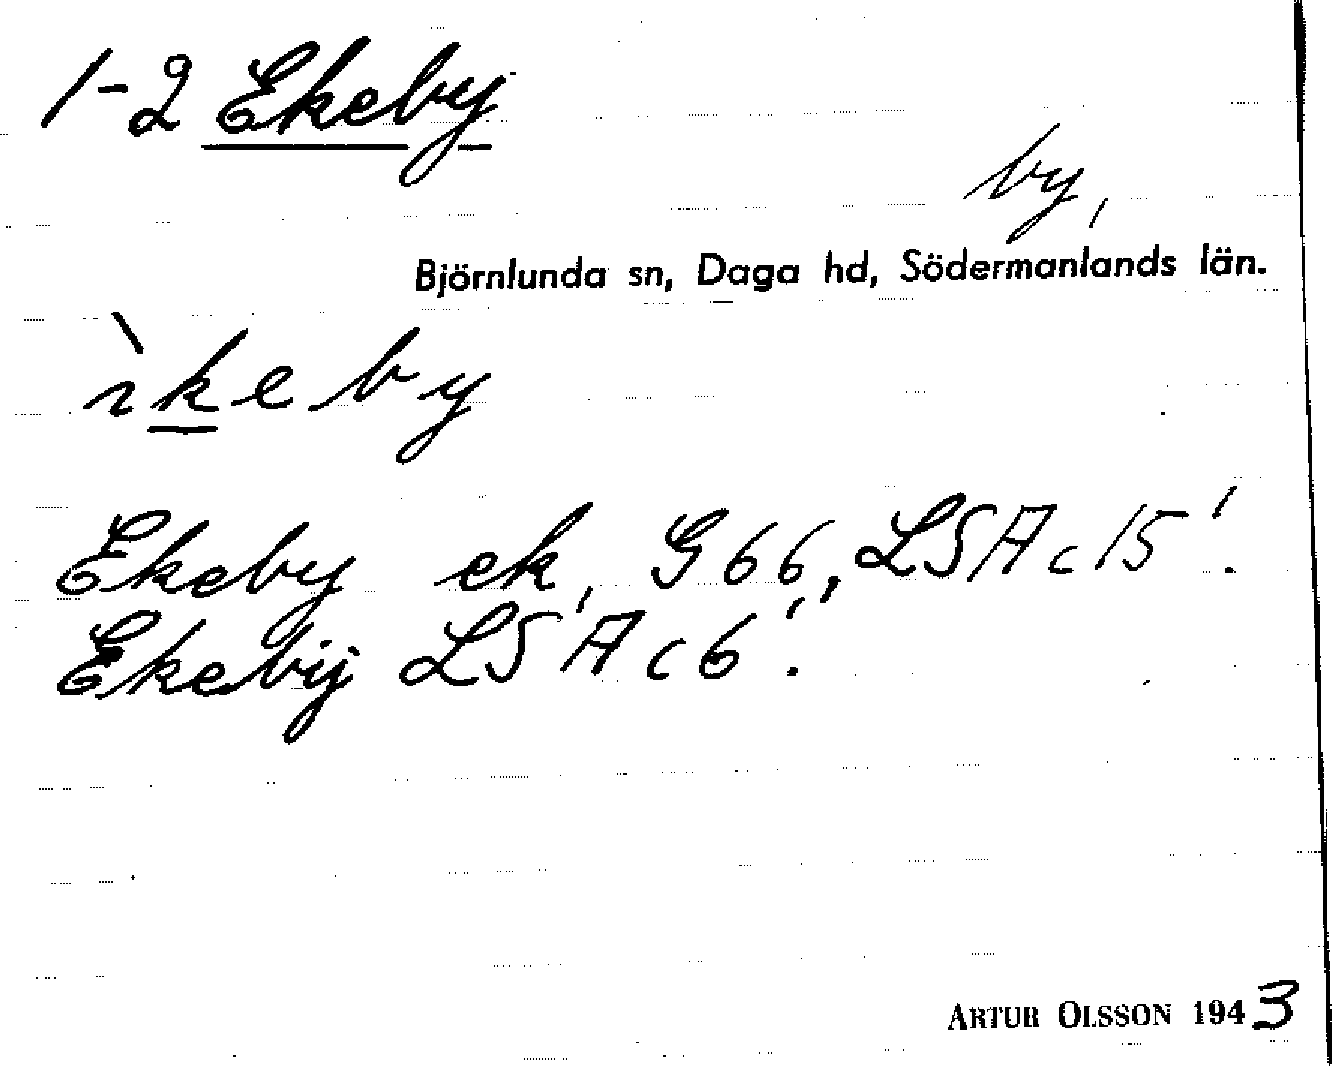 1-2 Ekeby
by,
Björnlunda sn, Daga hd, Södermanlands län.
ı̀keby
Ekeby ek, G 66, LSA c 15!
Ekebÿ LSA c 6!
ARTUR OLSSON 1943